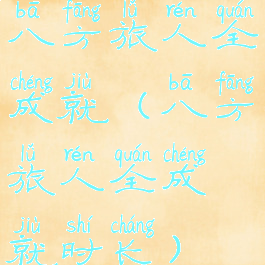 bā fāng lǚ rén quán
八方旅人全
chéng jiù bā fāng
成就（八方
lǚ rén quán chéng
旅人全成
jiù shí cháng
就时长）